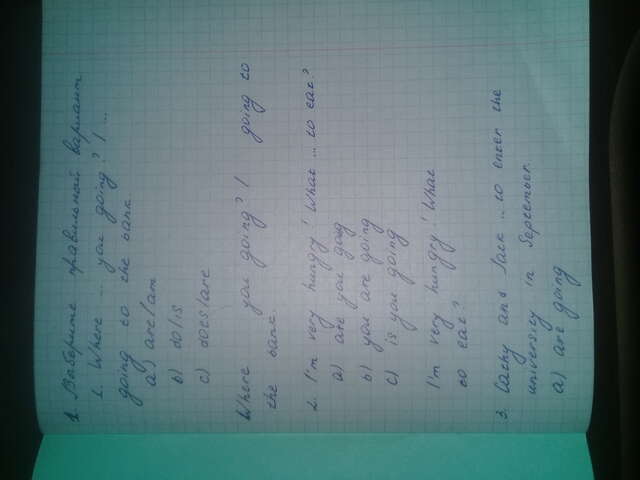 1. Выберите правильный вариант
1. Where ... you going? I ...
going to the bank
a) are/am
b) do/is
c) does/are
Where you going? I going to
the bank.
2. I'm very hungry! What ... to eat?
a) are you goig
b) you are going
c) is you going
I'm very hungry! What
to eat?
3. Cathy and Jack ... to enter the
university in September.
a) are going